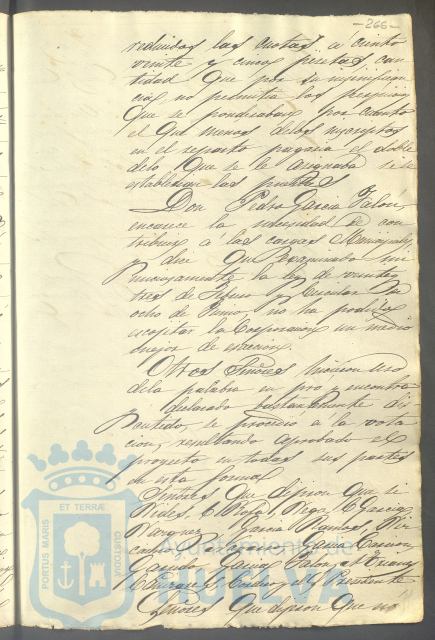 -266-
reducidas las cuotas á ciento
veinte y cinco pesetas can
tidad que por su insignifican
cia no permitia los perjuicios
que se ponderaban por cuanto
el que menos de los inscriptos
en el reparto pagaria el doble
de lo que se le asignaba si se
establecian las
Don Pedro Garcia Jalón,
encarece la necesidad de con
tribuir á las cargas Municipales
y dice que examinado mi
nuciosamente la ley de veinte
tres de Febrero y Circular de
ocho de Junio, no ha podido
escojitar la Corporacion un medio
mejor de exaccion.
Otros Señores hicieron uso
de la palabra en pro y en contra
y declarado bastantemente dis
cutido, se procedió a la vota
cion, resultando aprobado el
proyecto en todas sus partes
en esta forma
Señores que dijeron que si
Garcia
Vazquez, Garcia Ramos,
Garrido, Garcia Jalon,
y el Presidente
Señores que dijeron que no
Ayuntamiento de
HUELVA
PORTUS MARIS ET TERRÆ CUSTODIA